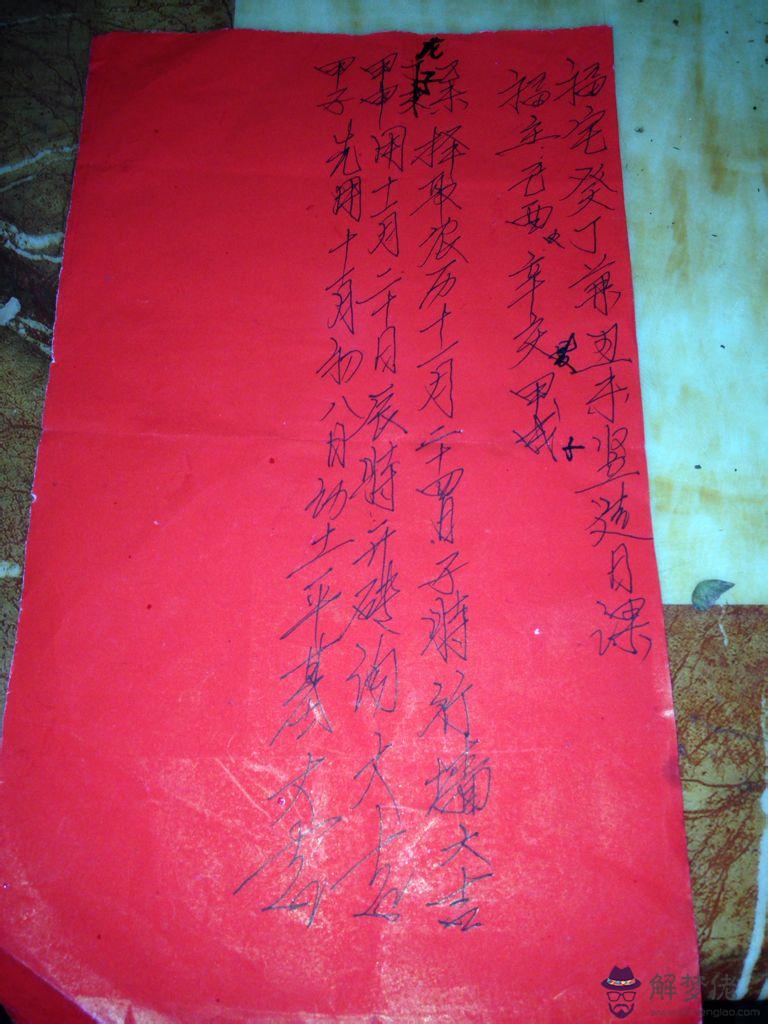 福宅癸丁兼丑未竖造日课
福主己酉 父 辛亥 妻 甲戌 子
择取农历十一月二十四日子时行墙大吉
甲申 用十一月二十日辰时开砖沟大吉
甲子 先用十一月初八日动土平基大吉
解梦佬
www.jiemenglao.com